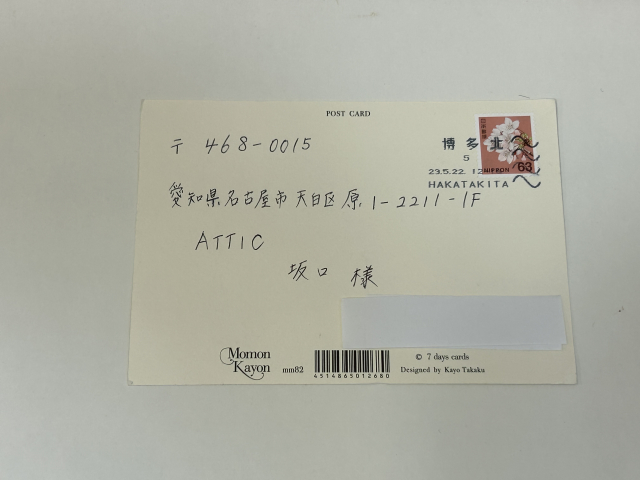 POST CARD
〒 468-0015
博多北
5
23.5.22. 12
HAKATAKITA
日本郵便
NIPPON
63
愛知県名古屋市天白区原 1-2211-1F
ATTIC
坂口 様
Momon
Kayon
mm82
4514865012680
© 7 days cards
Designed by Kayo Takaku